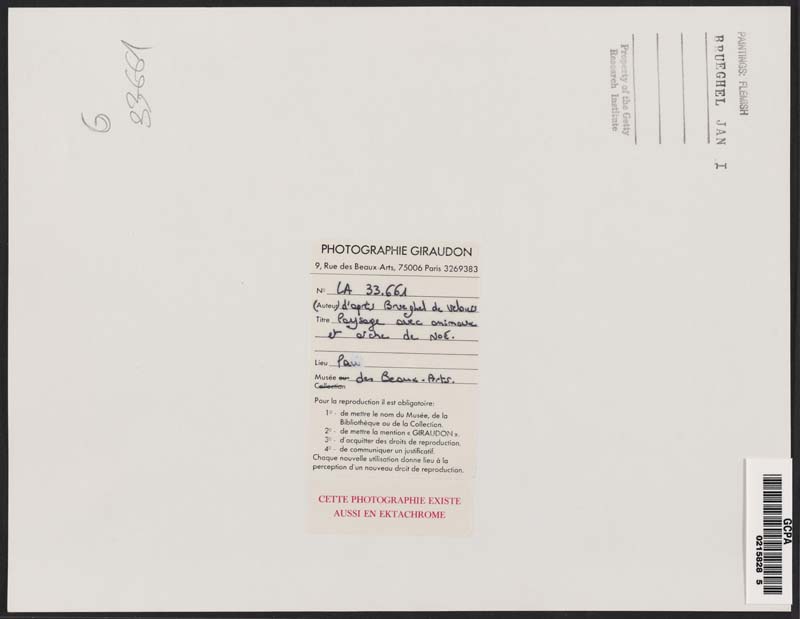 6
33661
PAINTINGS: FLEMISH
BRUEGHEL JAN I
Property of the Getty
Research Institute
PHOTOGRAPHIE GIRAUDON
9, Rue des Beaux-Arts, 75006 Paris 3269383
N° LA 33.661
(Auteur) d'après Brueghel de Velours
Titre Paysage avec animaux
et arche de NOÉ.
Lieu Pau
Musée ou des Beaux-Arts.
Collection
Pour la reproduction il est obligatoire:
1° - de mettre le nom du Musée, de la
Bibliothèque ou de la Collection.
2° - de mettre la mention « GIRAUDON ».
3° - d'acquitter des droits de reproduction.
4° - de communiquer un justificatif.
Chaque nouvelle utilisation donne lieu à la
perception d'un nouveau droit de reproduction.
CETTE PHOTOGRAPHIE EXISTE
AUSSI EN EKTACHROME
GCPA
0215828 5